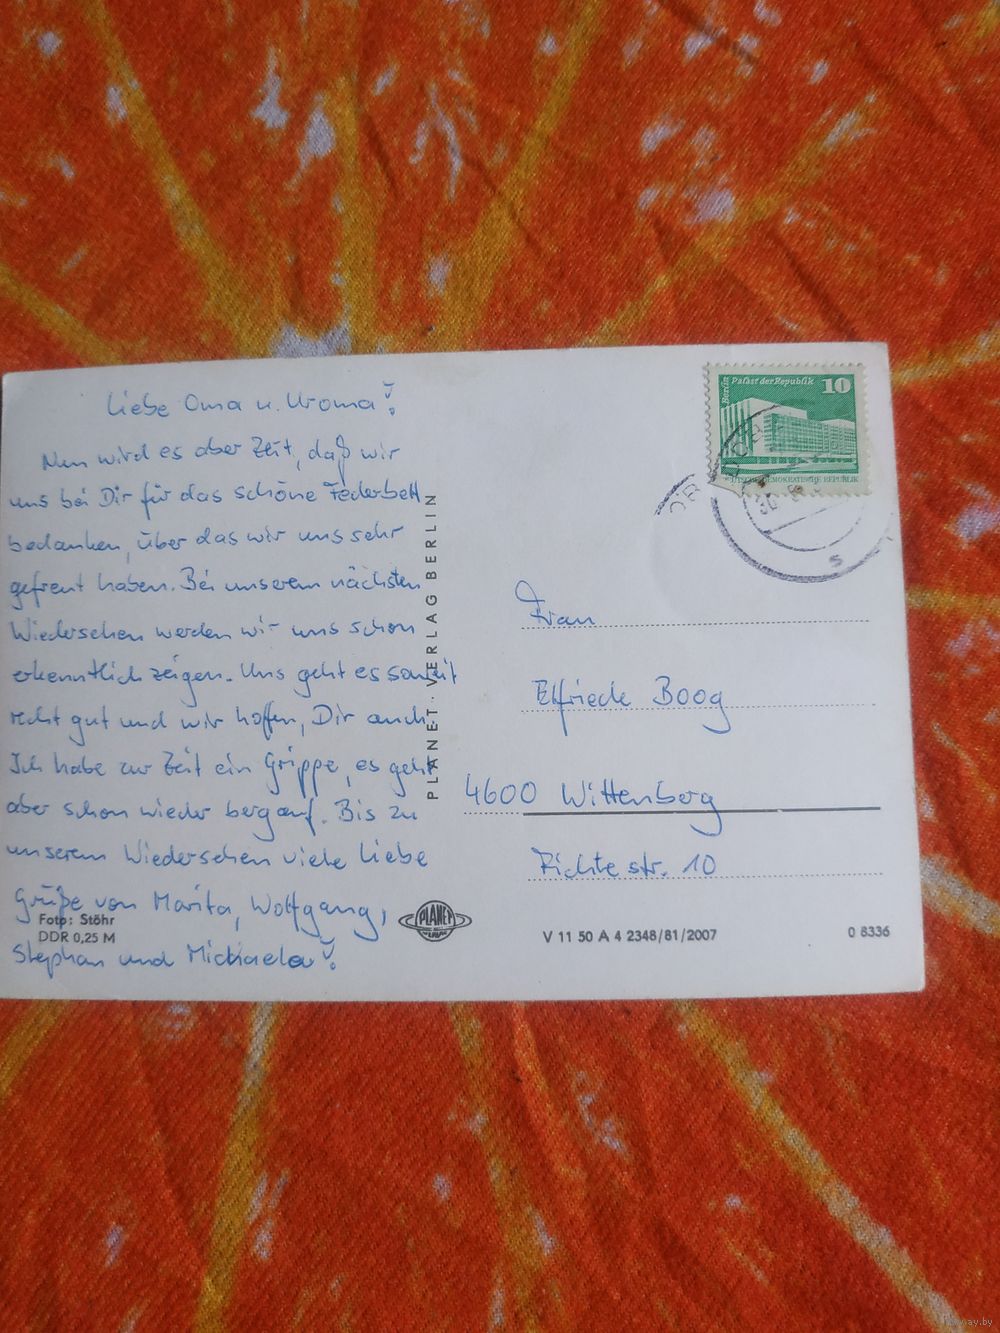 Liebe Oma u. Uroma!
Nun wird es aber Zeit, daß wir
uns bei Dir für das schöne Federbett
bedanken, über das wir uns sehr
gefreut haben. Bei unserem nächsten
Wiedersehen werden wir uns schon
erkenntlich zeigen. Uns geht es soweit
recht gut und wir hoffen, Dir auch.
Ich habe zur Zeit ein Grippe, es geht
aber schon wieder bergauf. Bis zu
unserem Wiedersehen viele liebe
Grüße von Marita, Wolfgang,
Stephan und Michaela!
Foto: Stöhr
DDR 0,25 M
PLANET-VERLAG BERLIN
PLANET
Berlin
Palast der Republik
10
DEUTSCHE DEMOKRATISCHE REPUBLIK
Frau
Elfriede Boog
4600 Wittenberg
Richte str. 10
V 11 50 A 4 2348/81/2007
0 8336